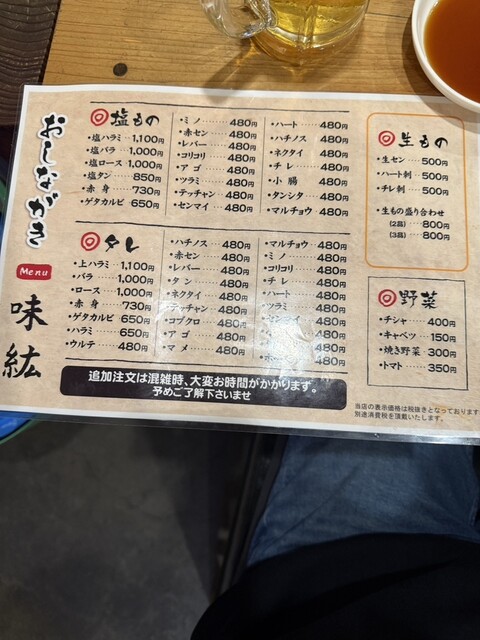 おしながき
Menu
味紘
塩もの
・塩ハラミ・・1,100円
・塩バラ・・・・1,000円
・塩ロース・・1,000円
・塩タン・・・・・・850円
・赤身・・・・・・・730円
・ゲタカルビ・・650円
・ミノ・・・・・・・480円
・赤セン・・・・・480円
・レバー・・・・・480円
・コリコリ・・・・480円
・アゴ・・・・・・・480円
・ツラミ・・・・・480円
・テッチャン・・480円
・センマイ・・・・480円
・ハート・・・・・480円
・ハチノス・・・・480円
・ネクタイ・・・・480円
・チレ・・・・・・・480円
・小腸・・・・・・・480円
・タンシタ・・・・480円
・マルチョウ・・480円
タレ
・上ハラミ・・1,100円
・バラ・・・・・・1,000円
・ロース・・・・1,000円
・赤身・・・・・・・730円
・ゲタカルビ・・650円
・ハラミ・・・・・650円
・ウルテ・・・・・480円
・ハチノス・・・・480円
・赤セン・・・・・480円
・レバー・・・・・480円
・タン・・・・・・・480円
・ネクタイ・・・・480円
・テッチャン・・480円
・コブクロ・・・・480円
・アゴ・・・・・・・480円
・マメ・・・・・・・480円
・マルチョウ・・480円
・ミノ・・・・・・・480円
・コリコリ・・・・480円
・チレ・・・・・・・480円
・ハート・・・・・480円
・ツラミ・・・・・480円
480円
480円
480円
生もの
・生セン・・・・・500円
・ハート刺・・・・500円
・チレ刺・・・・・500円
・生もの盛り合わせ
(2品)・・・・・・800円
(3品)・・・・・・800円
野菜
・チシャ・・・・・400円
・キャベツ・・・・150円
・焼き野菜・・・・300円
・トマト・・・・・350円
追加注文は混雑時、大変お時間がかかります。
予めご了解下さいませ
当店の表示価格は税抜きとなっております
別途消費税を頂戴いたします。